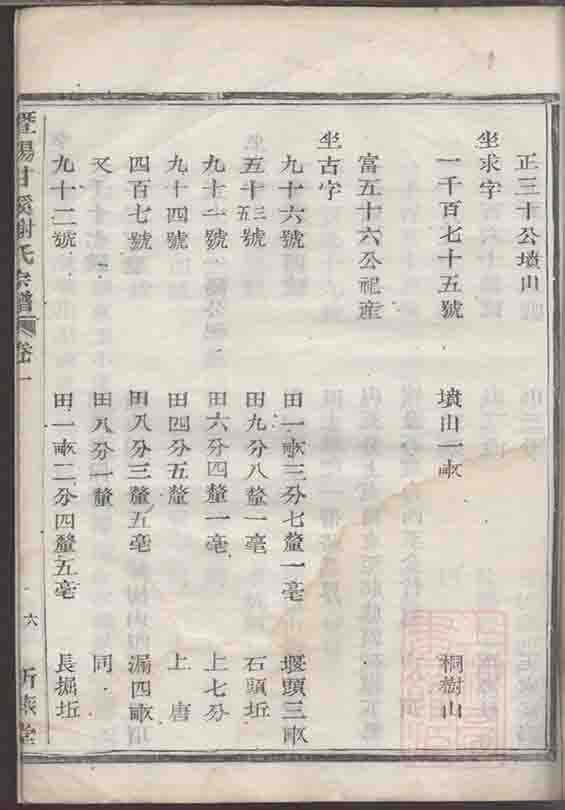 正三十公墳山
坐求字
一千百七十五號 墳山一畝 桐樹山
富五十六公祀産
坐古字
九十六號 田一畝三分七釐一毫 堰頭三畝
五十三五號 田九分八釐一毫 石頭坵
九十一號 田六分四釐一毫 上七分
九十四號 田四分五釐 上唐
四百七號 田八分三釐五毫 漏四畝
又 田八分一釐 同
九十二號 田一畝二分四釐五毫 長掘坵
暨陽甘溪謝氏宗譜 卷一 六 堂